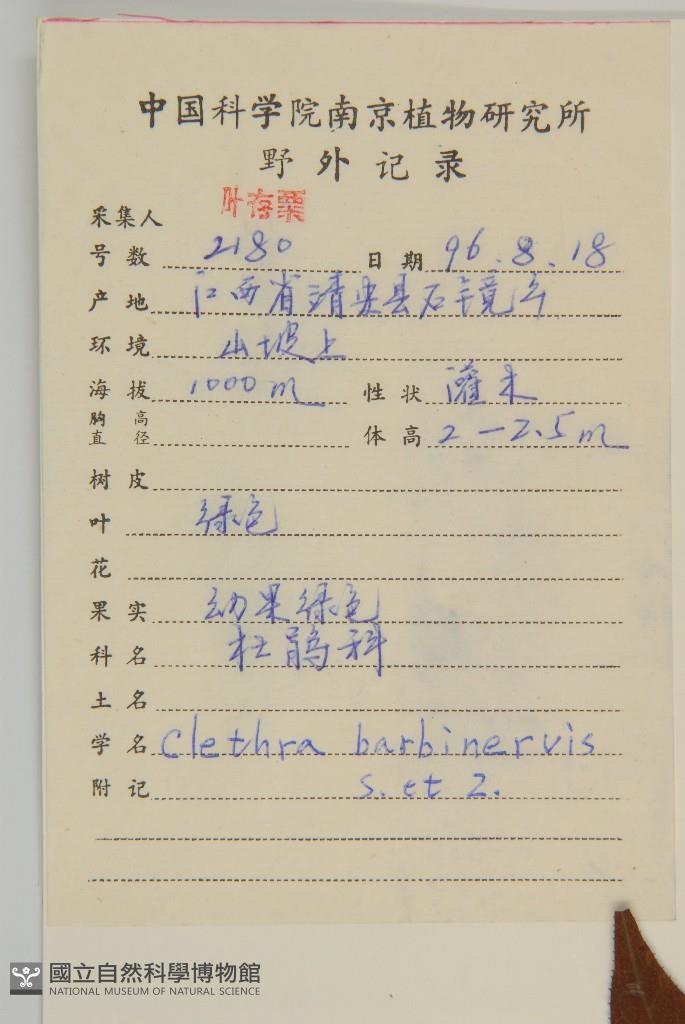 中国科学院南京植物研究所
野外记录
采集人 叶存粟
号数 2180 日期 96.8.18
产地 江西省靖安县石镜乡
环境 山坡上
海拔 1000m 性状 灌木
胸高直径 体高 2—2.5m
树皮
叶 绿色
花
果实 幼果绿色
科名 杜鹃科
土名
学名 Clethra barbinervis
附记 S. et Z.
國立自然科學博物館
NATIONAL MUSEUM OF NATURAL SCIENCE